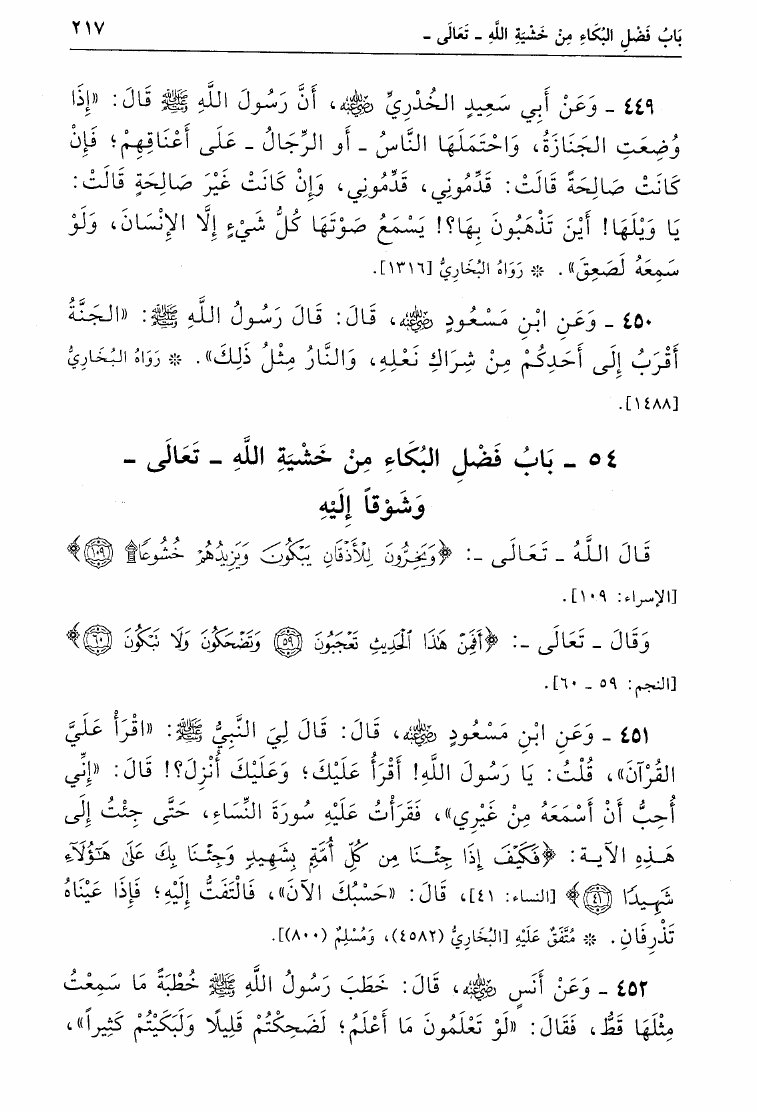 بَابُ فَضْلِ البُكَاءِ مِنْ خَشْيَةِ اللَّهِ ـ تَعَالَى ـ ٢١٧
٤٤٩ ـ وَعَنْ أَبِي سَعِيدٍ الخُدْرِيِّ رضي الله عنه، أَنَّ رَسُولَ اللَّهِ ﷺ قَالَ: «إِذَا
وُضِعَتِ الجَنَازَةُ، وَاحْتَمَلَهَا النَّاسُ ـ أَو الرِّجَالُ ـ عَلَى أَعْنَاقِهِمْ؛ فَإِنْ
كَانَتْ صَالِحَةً قَالَتْ: قَدِّمُونِي، قَدِّمُونِي، وَإِنْ كَانَتْ غَيْرَ صَالِحَةٍ قَالَتْ:
يَا وَيْلَهَا! أَيْنَ تَذْهَبُونَ بِهَا؟! يَسْمَعُ صَوْتَهَا كُلُّ شَيْءٍ إِلَّا الإِنْسَانَ، وَلَوْ
سَمِعَهُ لَصَعِقَ». * رَوَاهُ البُخَارِيُّ [١٣١٦].
٤٥٠ ـ وَعَنِ ابْنِ مَسْعُودٍ رضي الله عنه، قَالَ: قَالَ رَسُولُ اللَّهِ ﷺ: «الجَنَّةُ
أَقْرَبُ إِلَى أَحَدِكُمْ مِنْ شِرَاكِ نَعْلِهِ، وَالنَّارُ مِثْلُ ذَلِكَ». * رَوَاهُ البُخَارِيُّ
[١٤٨٨].
٥٤ ـ بَابُ فَضْلِ البُكَاءِ مِنْ خَشْيَةِ اللَّهِ ـ تَعَالَى ـ
وَشَوْقاً إِلَيْهِ
قَالَ اللَّهُ ـ تَعَالَى ـ: ﴿وَيَخِرُّونَ لِلْأَذْقَانِ يَبْكُونَ وَيَزِيدُهُمْ خُشُوعًا ۩ ١٠٩﴾
[الإسراء: ١٠٩].
وَقَالَ ـ تَعَالَى ـ: ﴿أَفَمِنْ هَٰذَا الْحَدِيثِ تَعْجَبُونَ ٥٩ وَتَضْحَكُونَ وَلَا تَبْكُونَ ٦٠﴾
[النجم: ٥٩ ـ ٦٠].
٤٥١ ـ وَعَنِ ابْنِ مَسْعُودٍ رضي الله عنه، قَالَ: قَالَ لِيَ النَّبِيُّ ﷺ: «اقْرَأْ عَلَيَّ
القُرْآنَ»، قُلْتُ: يَا رَسُولَ اللَّهِ! أَقْرَأُ عَلَيْكَ؛ وَعَلَيْكَ أُنْزِلَ؟! قَالَ: «إِنِّي
أُحِبُّ أَنْ أَسْمَعَهُ مِنْ غَيْرِي»، فَقَرَأْتُ عَلَيْهِ سُورَةَ النِّسَاءِ، حَتَّى جِئْتُ إِلَى
هَذِهِ الآيَة: ﴿فَكَيْفَ إِذَا جِئْنَا مِن كُلِّ أُمَّةٍ بِشَهِيدٍ وَجِئْنَا بِكَ عَلَىٰ هَٰؤُلَاءِ
شَهِيدًا ٤١﴾ [النساء: ٤١]، قَالَ: «حَسْبُكَ الآنَ»، فَالْتَفَتُّ إِلَيْهِ؛ فَإِذَا عَيْنَاهُ
تَذْرِفَانِ. * مُتَّفَقٌ عَلَيْهِ [البُخَارِيُّ (٤٥٨٢)، وَمُسْلِمٌ (٨٠٠)].
٤٥٢ ـ وَعَنْ أَنَسٍ رضي الله عنه، قَالَ: خَطَبَ رَسُولُ اللَّهِ ﷺ خُطْبَةً مَا سَمِعْتُ
مِثْلَهَا قَطُّ، فَقَالَ: «لَوْ تَعْلَمُونَ مَا أَعْلَمُ؛ لَضَحِكْتُمْ قَلِيلًا وَلَبَكَيْتُمْ كَثِيراً»،